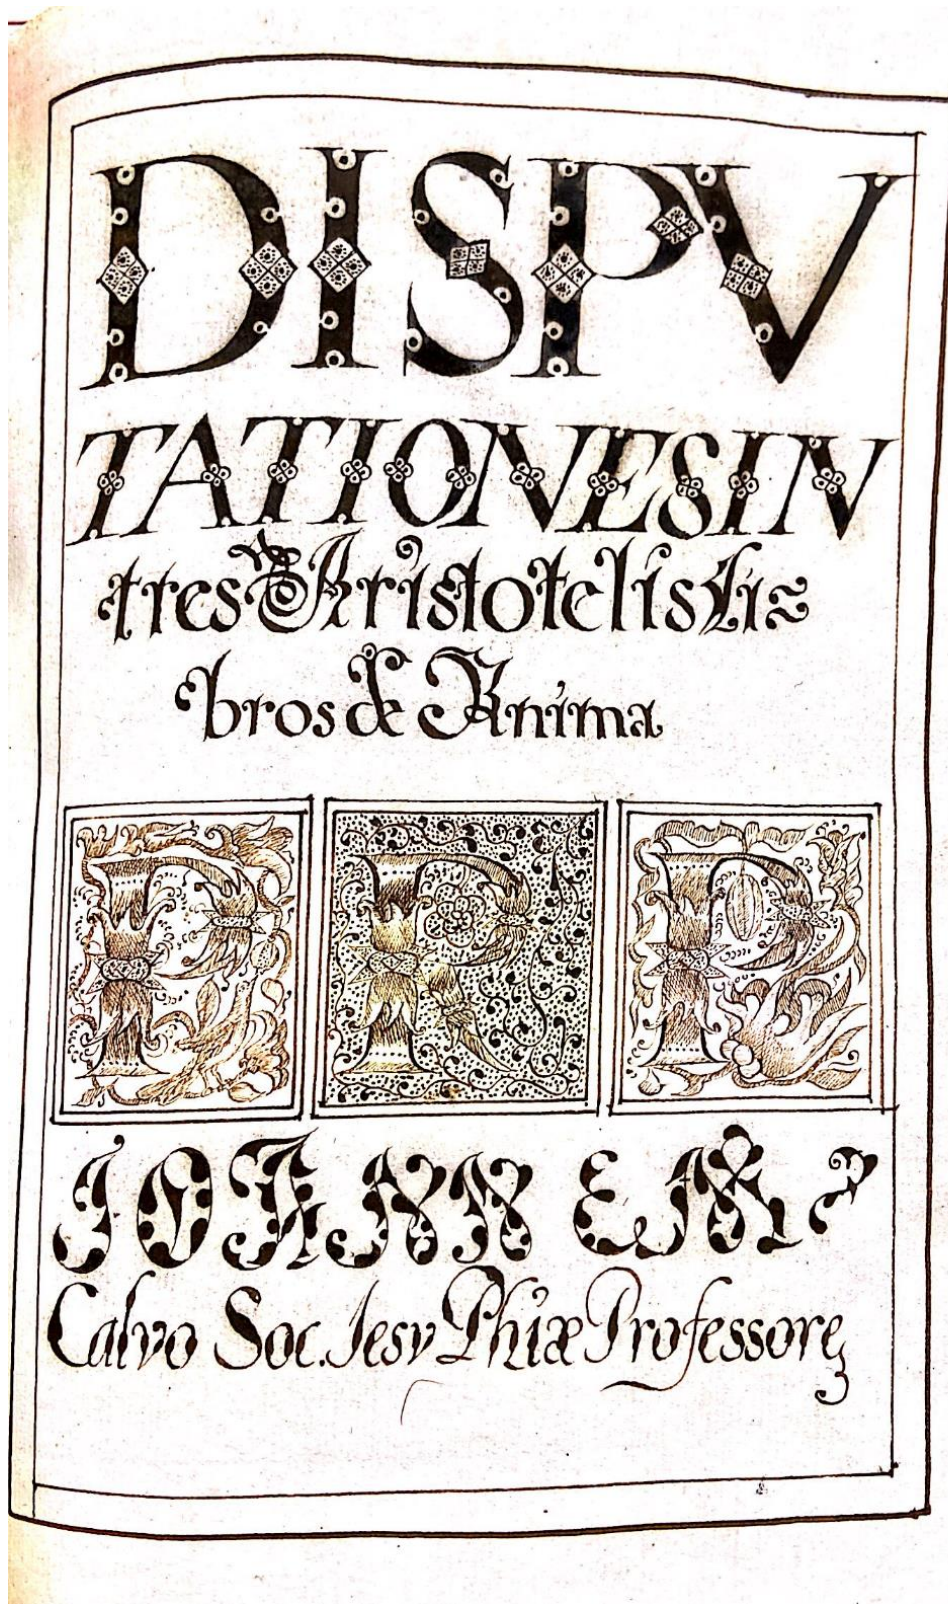 DISPV
TATIONES IN
tres Aristotelis Li=
bros de Anima
P R P
JOANNEM
Calvo Soc. Jesv Phiæ Professoreʒ